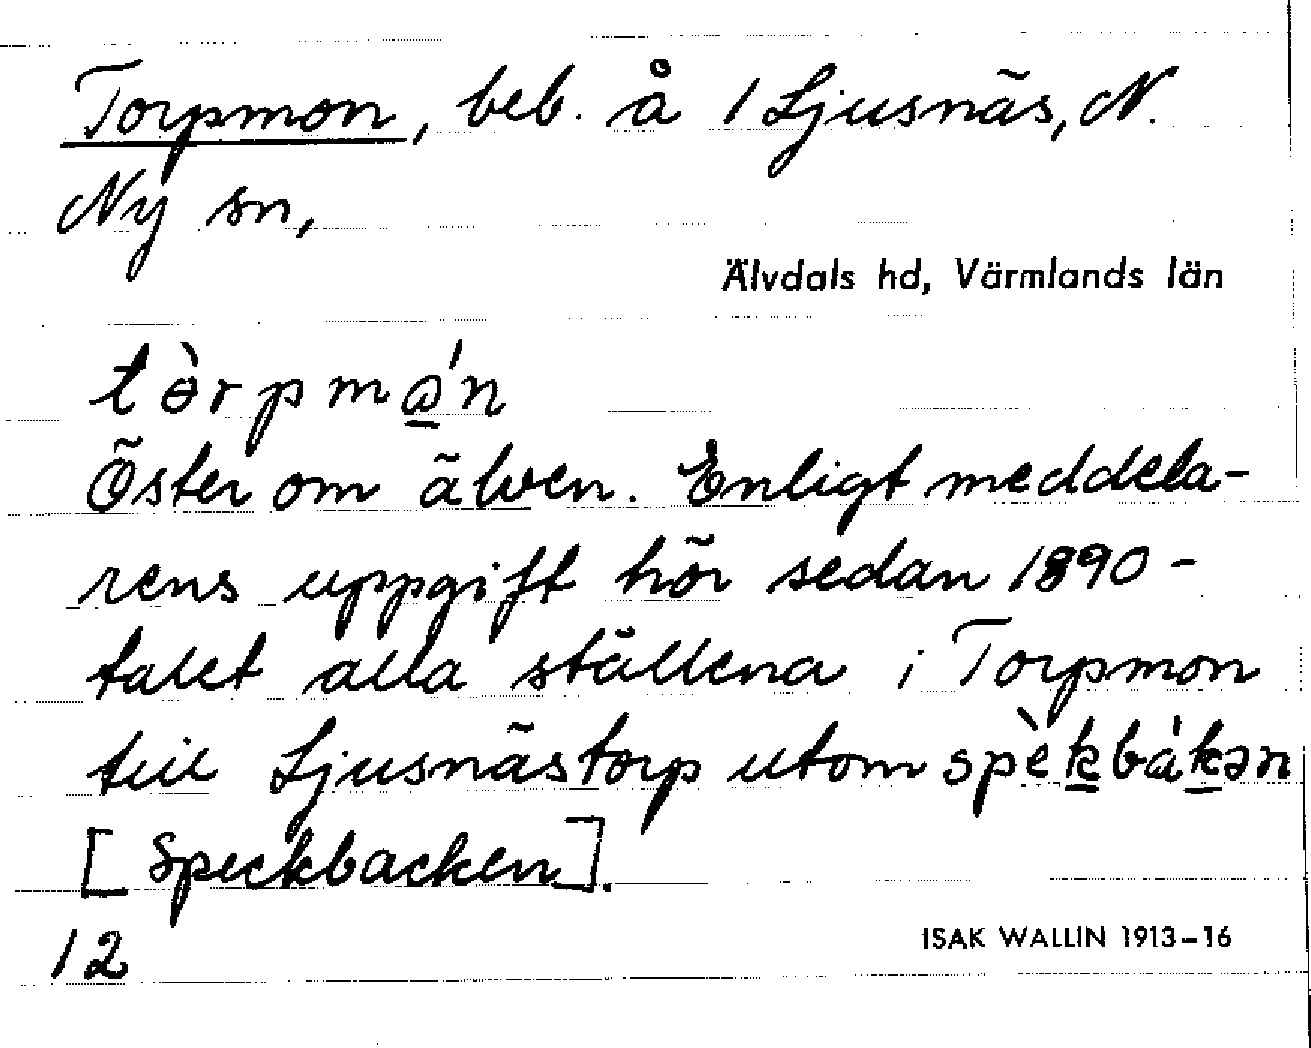 Torpmon, beb. å 1 Ljusnäs, N.
Ny sn,
Älvdals hd, Värmlands län
tɵ̀rpmώ̱n
Öster om älven. Enligt meddela-
rens uppgift hör sedan 1890-
talet alla ställena i Torpmon
till Ljusnästorp utom spèḵbáḵən
[Speckbacken].
12
ISAK WALLIN 1913–16